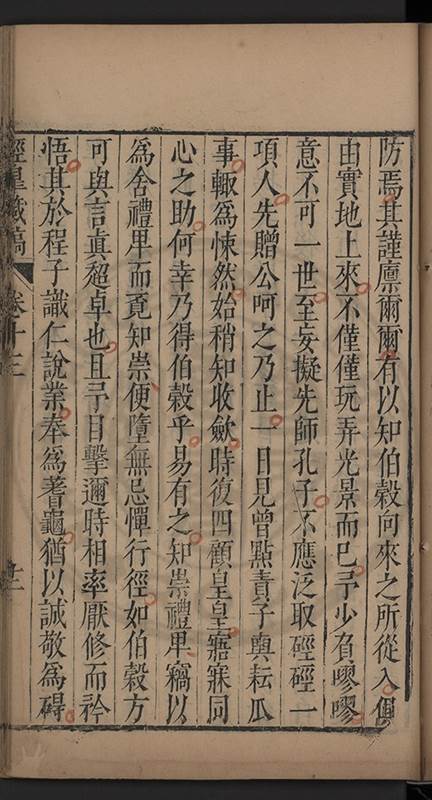 防焉其謹廪爾爾有以知伯穀向來之所從入俱
由實地上來不僅僅玩弄光景而已予少負嘐嘐
意不可一世至妄擬先師孔子不應泛取硜硜一
項人先贈公呵之乃止一日見曾點責子與耘瓜
事輙爲悚然始稍知收斂時復四顧皇皇寤寐同
心之助何幸乃得伯穀乎易有之知崇禮畢竊以
爲舍禮畢而覔知崇便墮無忌憚行徑如伯穀方
可與言眞超卓也且予目擊邇時相率厭修而衿
悟其於程子識仁說業奉爲蓍龜猶以誠敬爲碍
涇臯藏稿 卷十三